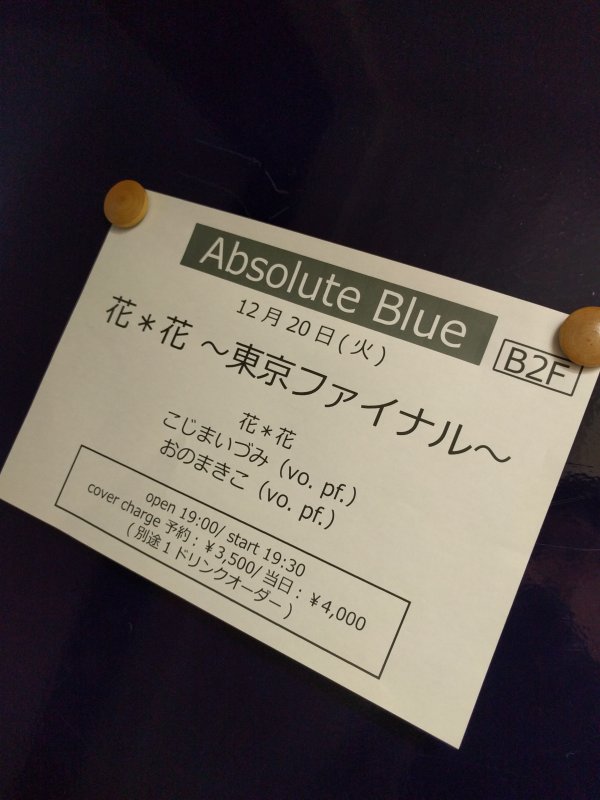 Absolute Blue
12月20日(火)
B2F
花＊花 ～東京ファイナル～
花＊花
こじまいづみ (vo. pf.)
おのまきこ (vo. pf.)
open 19:00/ start 19:30
cover charge 予約：￥3,500/ 当日：￥4,000
(別途1ドリンクオーダー)